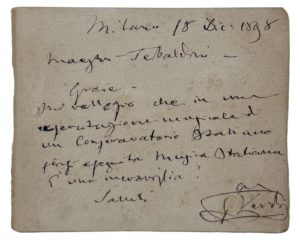 Milano 18 Dic: 1898
Maestro Tebaldini –
Grazie –
Mi rallegro che in una
esecuzione musicale d'
un Conservatorio Italiano
siasi eseguita Musica Italiana
È una meraviglia!
Saluti
G Verdi